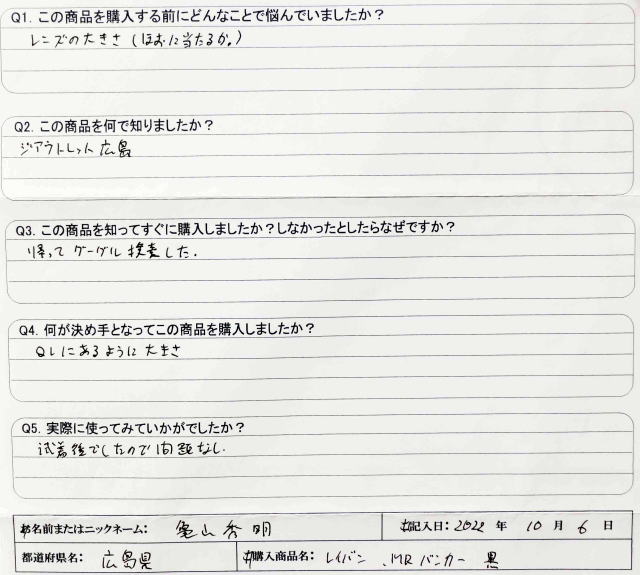 Q1. この商品を購入する前にどんなことで悩んでいましたか？
レンズの大きさ（ほおに当たるか。）
Q2. この商品を何で知りましたか？
ジアウトレット広島
Q3. この商品を知ってすぐに購入しましたか？しなかったとしたらなぜですか？
帰って グーグル 検索した.
Q4. 何が決め手となってこの商品を購入しましたか？
Q1にあるように 大きさ
Q5. 実際に使ってみていかがでしたか？
試着後でしたので 問題なし.
お名前またはニックネーム： 亀山秀明 ご記入日：2022 年 10 月 6 日
都道府県名： 広島県 ご購入商品名： レイバン .MR バンカー 黒